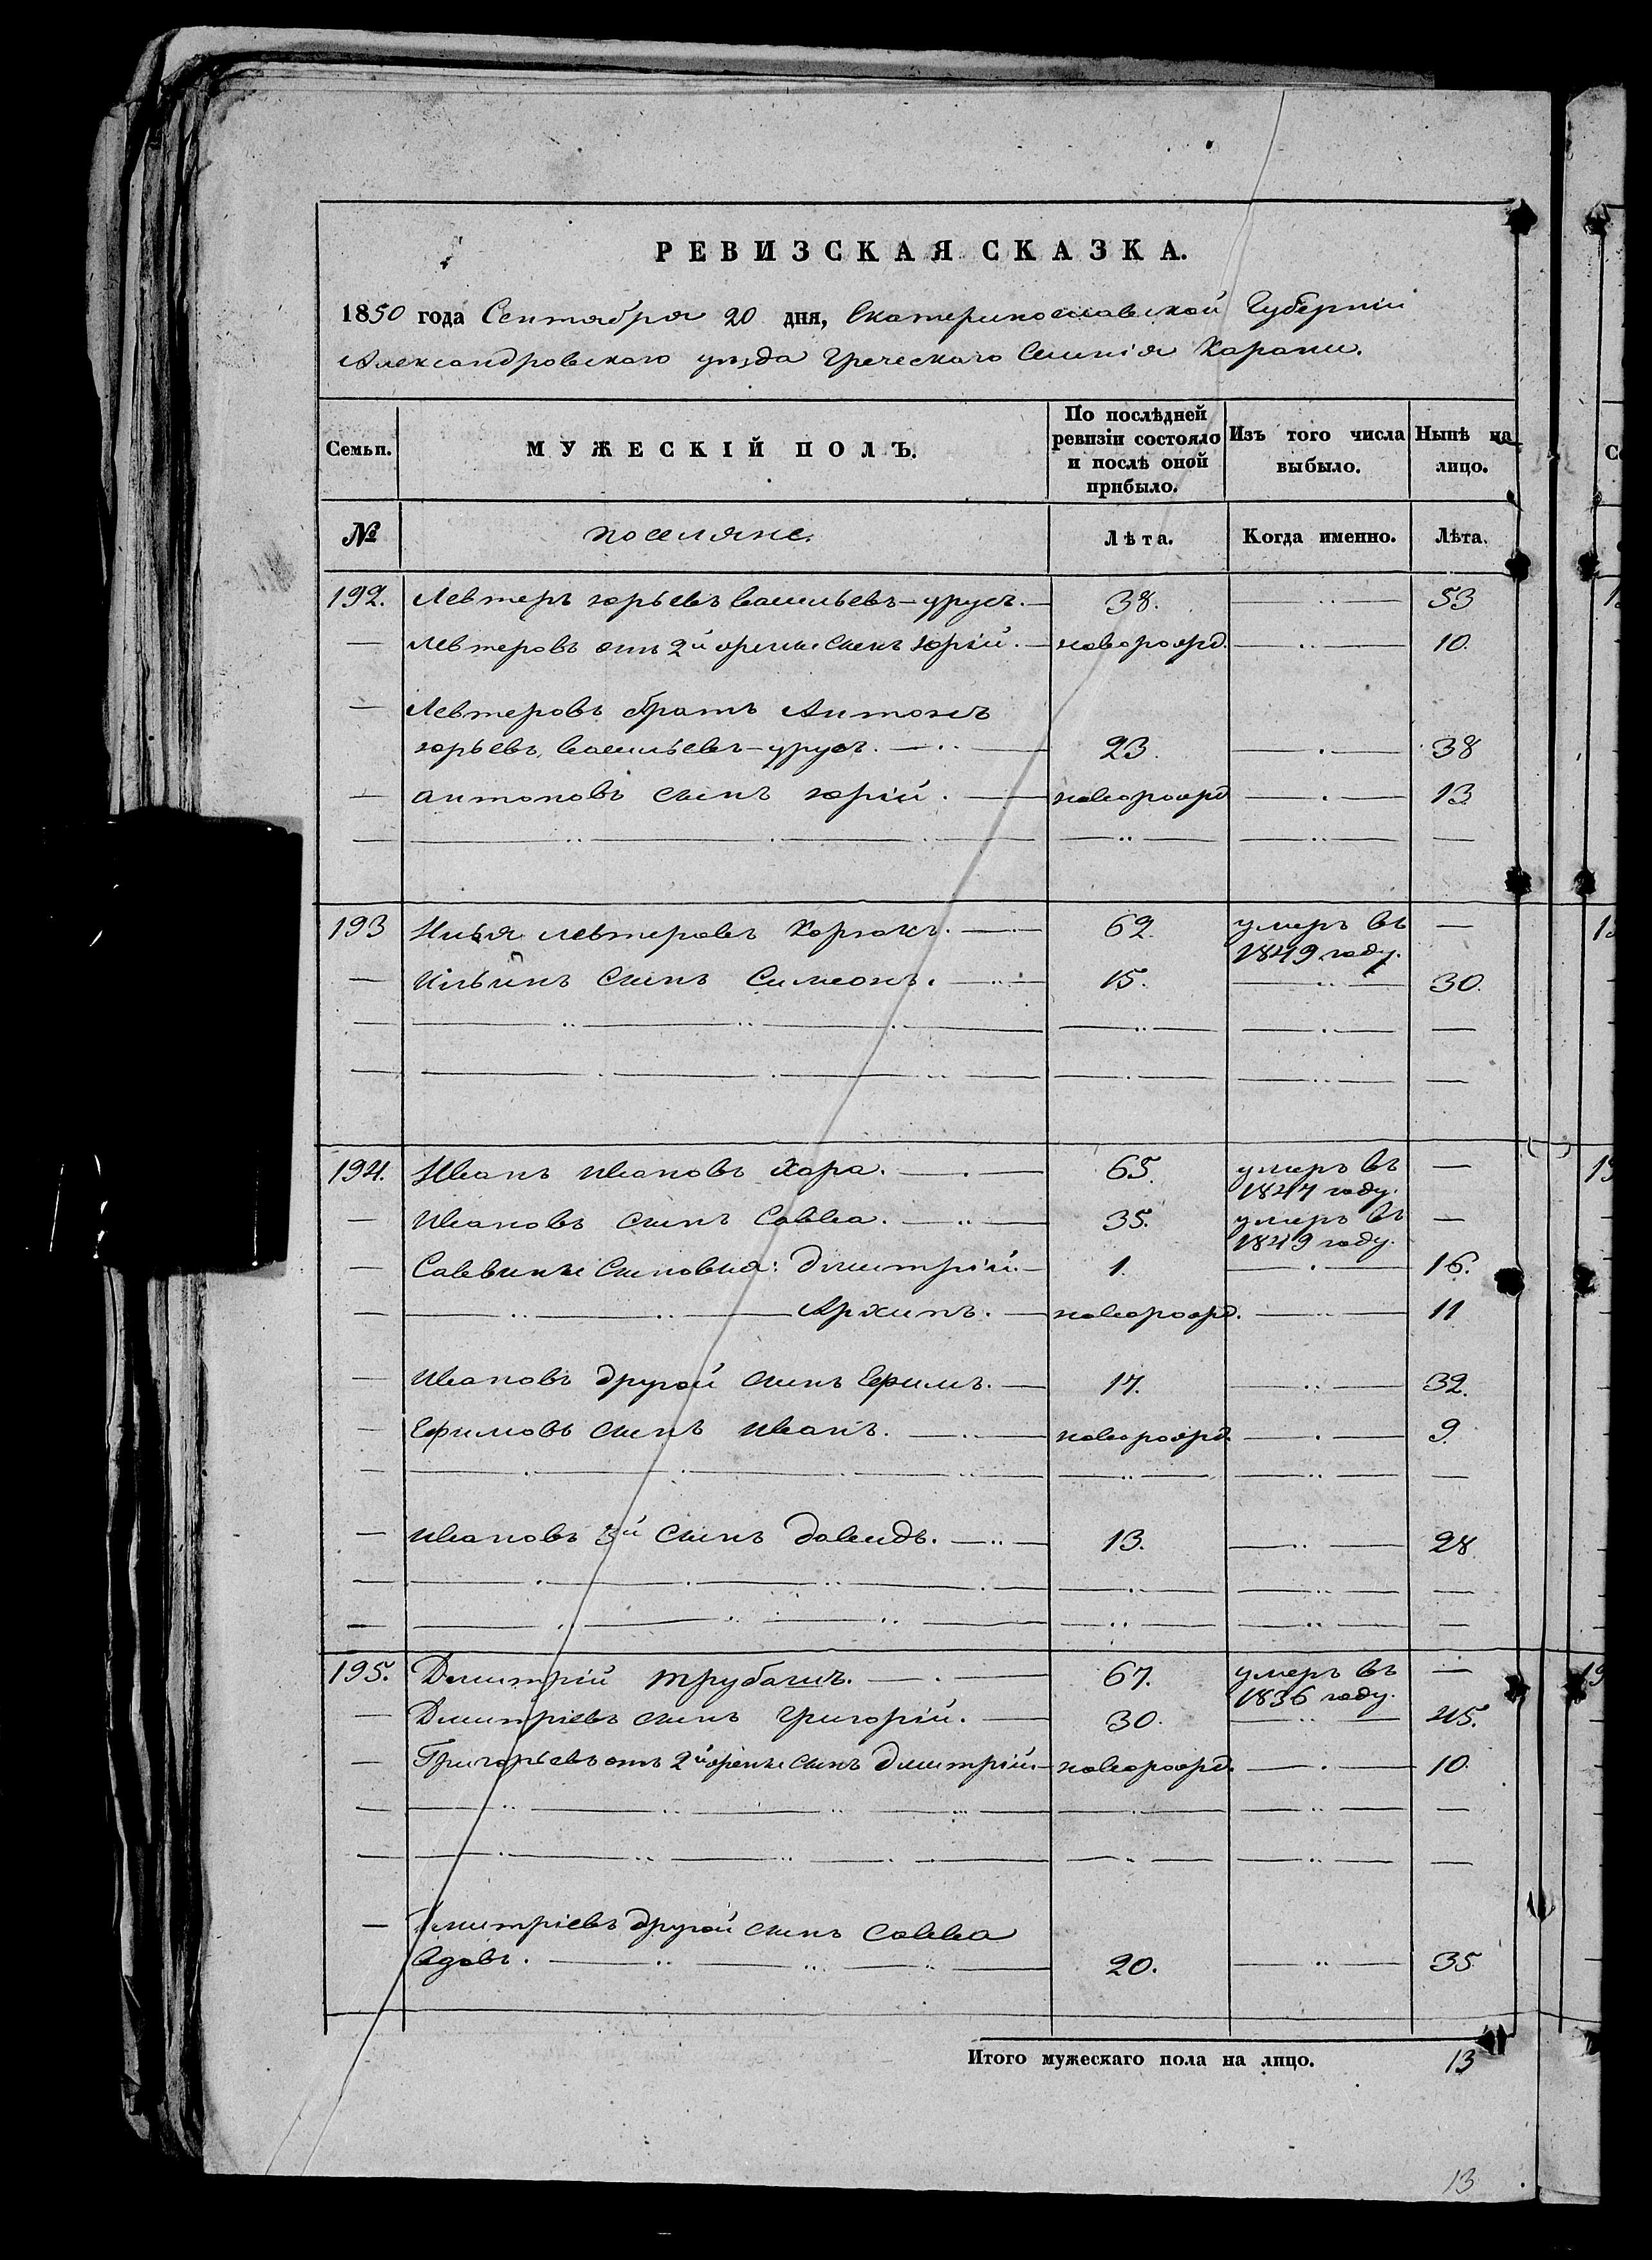 РЕВИЗСКАЯ СКАЗКА.
1850 года Сентября 20 дня, Екатеринославской Губерніи
Александровскаго уѣзда Греческаго Селенія Карани.
Семьи. МУЖЕСКІЙ ПОЛЪ. По послѣдней ревизіи состояло и послѣ оной прибыло. Изъ того числа выбыло. Нынѣ на лицо.
№ поселяне. Лѣта. Когда именно. Лѣта.
192. Левтеръ юрьевъ васильевъ-урусъ. 38. 53
Левтеровъ отъ 2й жены сынъ юрій. новорожд. 10.
Левтеровъ братъ Антонъ
юрьевъ васильевъ-урусъ. 23. 38
антоновъ сынъ юрій. новорожд 13.
193 Илья левтеровъ Хорюкъ. 62. умеръ въ
1849 году.
Ильинъ сынъ Симеонъ. 15. 30.
194. Иванъ ивановъ Хара. 65. умеръ въ
1847 году.
Ивановъ сынъ Савва. 35. умеръ въ
1849 году.
Саввины сыновья: дмитрій. 1. 16.
Архипъ. новорожд. 11
Ивановъ другой сынъ Ефимъ. 17. 32.
Ефимовъ сынъ иванъ. новорожд. 9.
Ивановъ 3й сынъ давидъ. 13. 28
195. Дмитрій трубачъ. 67. умеръ въ
1836 году.
Дмитріевъ сынъ григорій. 30. 45.
Григорьевъ отъ 2й жены сынъ дмитрій новорожд. 10.
Дмитріевъ другой сынъ Савва
вдовъ. 20. 35
Итого мужескаго пола на лицо. 13
13